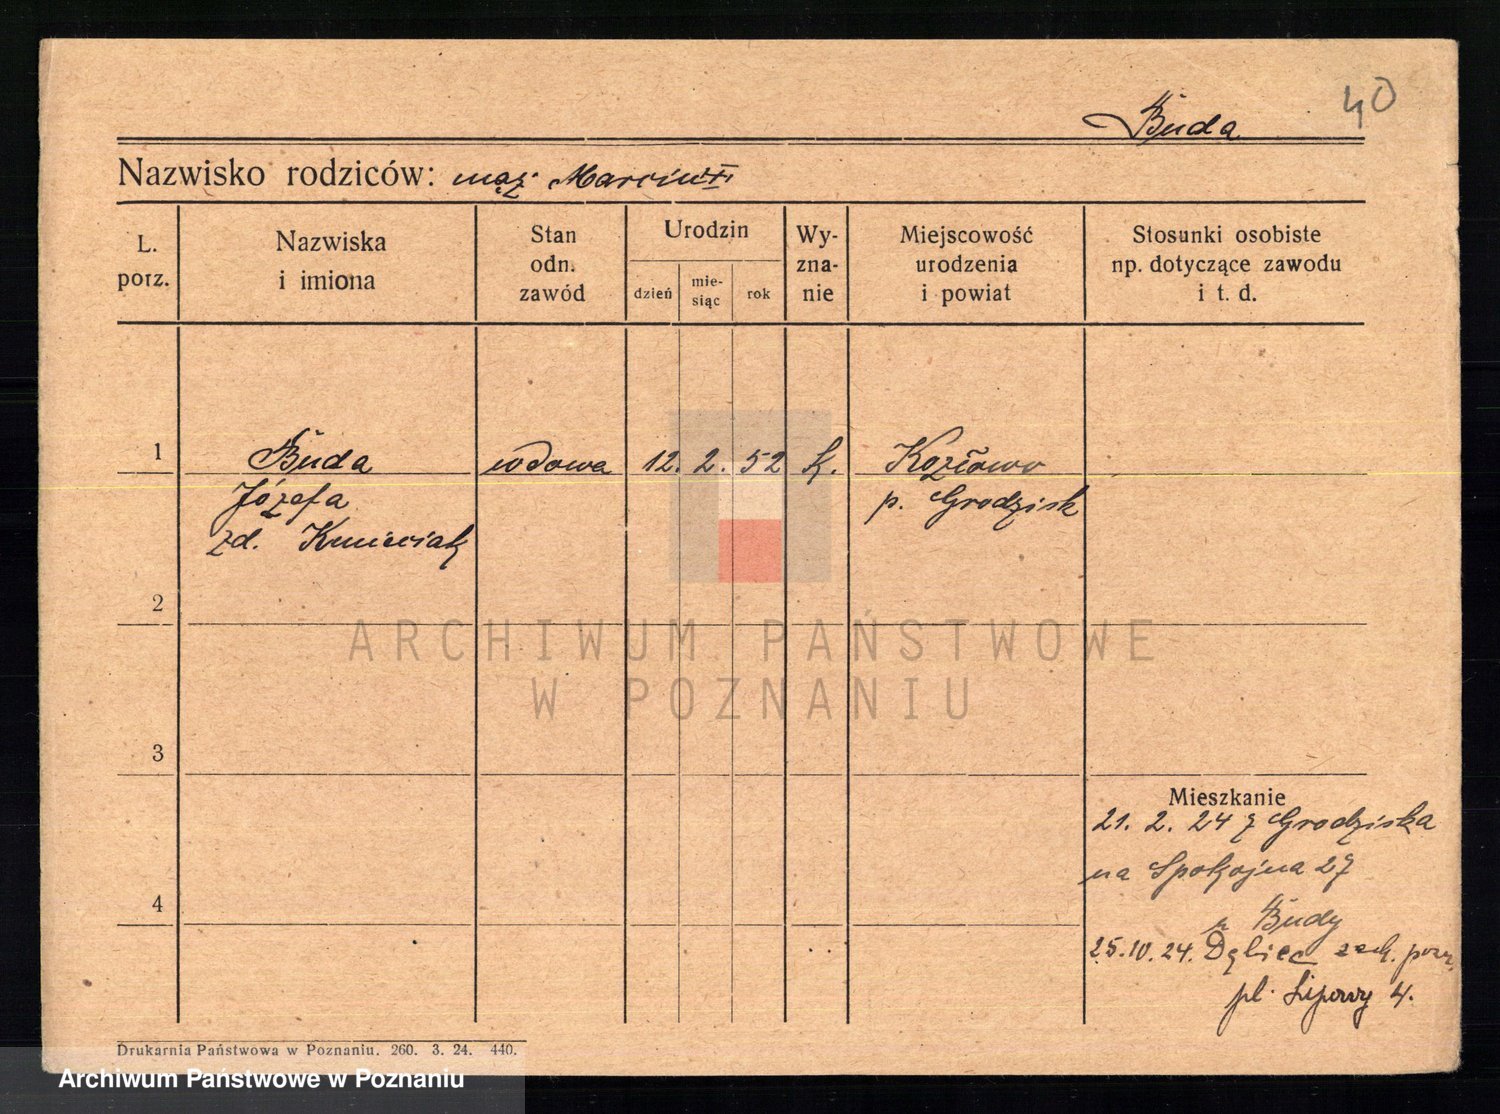 40
Buda
Nazwisko rodziców: mąż Marcin †
L. porz.
Nazwiska i imiona
Stan odn. zawód
Urodzin
dzień
mie- siąc
rok
Wy- zna- nie
Miejscowość urodzenia i powiat
Stosunki osobiste np. dotyczące zawodu i t. d.
1 Buda wdowa 12. 2. 52 k. Kozłowo
Józefa p. Grodzisk
zd. Kmieciak
2
3
4
Mieszkanie
21. 2. 24 z Grodziska
na Spokojna 27
p. Budy
25.10.24. Dębiec zach. pozn.
pl. Lipowy 4.
Drukarnia Państwowa w Poznaniu. 260. 3. 24. 440.
ARCHIWUM PAŃSTWOWE
W POZNANIU
Archiwum Państwowe w Poznaniu